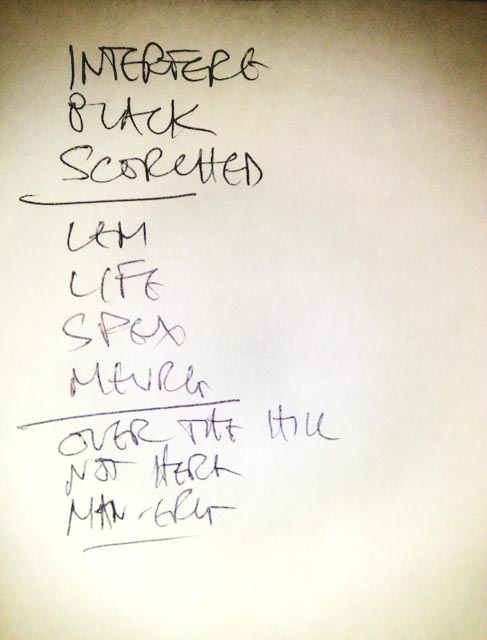 INTERFERE
BLACK
SCORCHED
LEM
LIFE
SPEX
MEURG
OVER THE HILL
NOT HERE
MAN-ERG